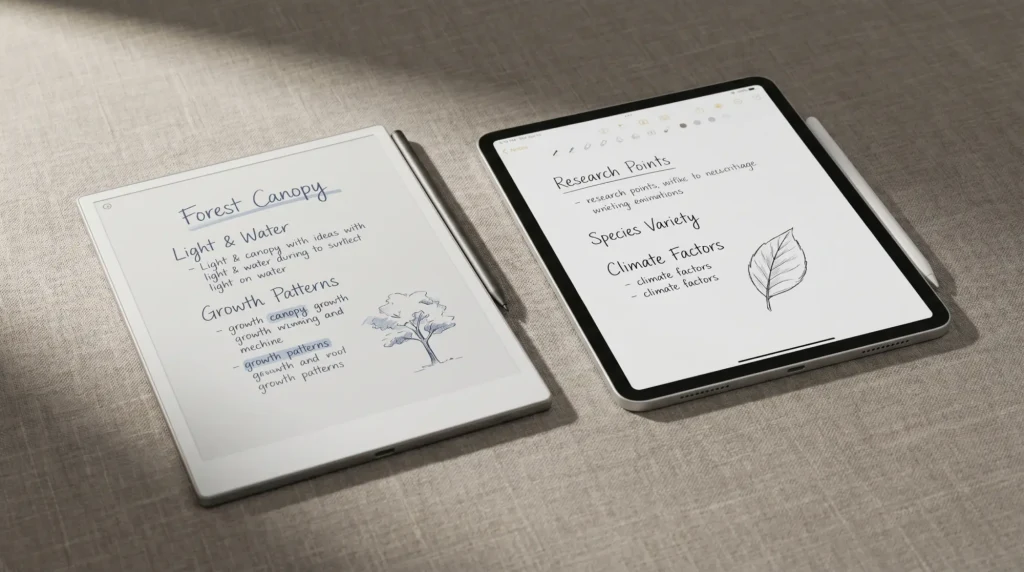 Forest Canopy
Light & Water
- Light & canopy with ideas with
light & water during to
light on water
Growth Patterns
- growth canopy growth
growth and
mechine
- growth patterns
and root
growth patterns
Research Points
- research points, to
Species Variety
Climate Factors
- climate factors
- climate factors